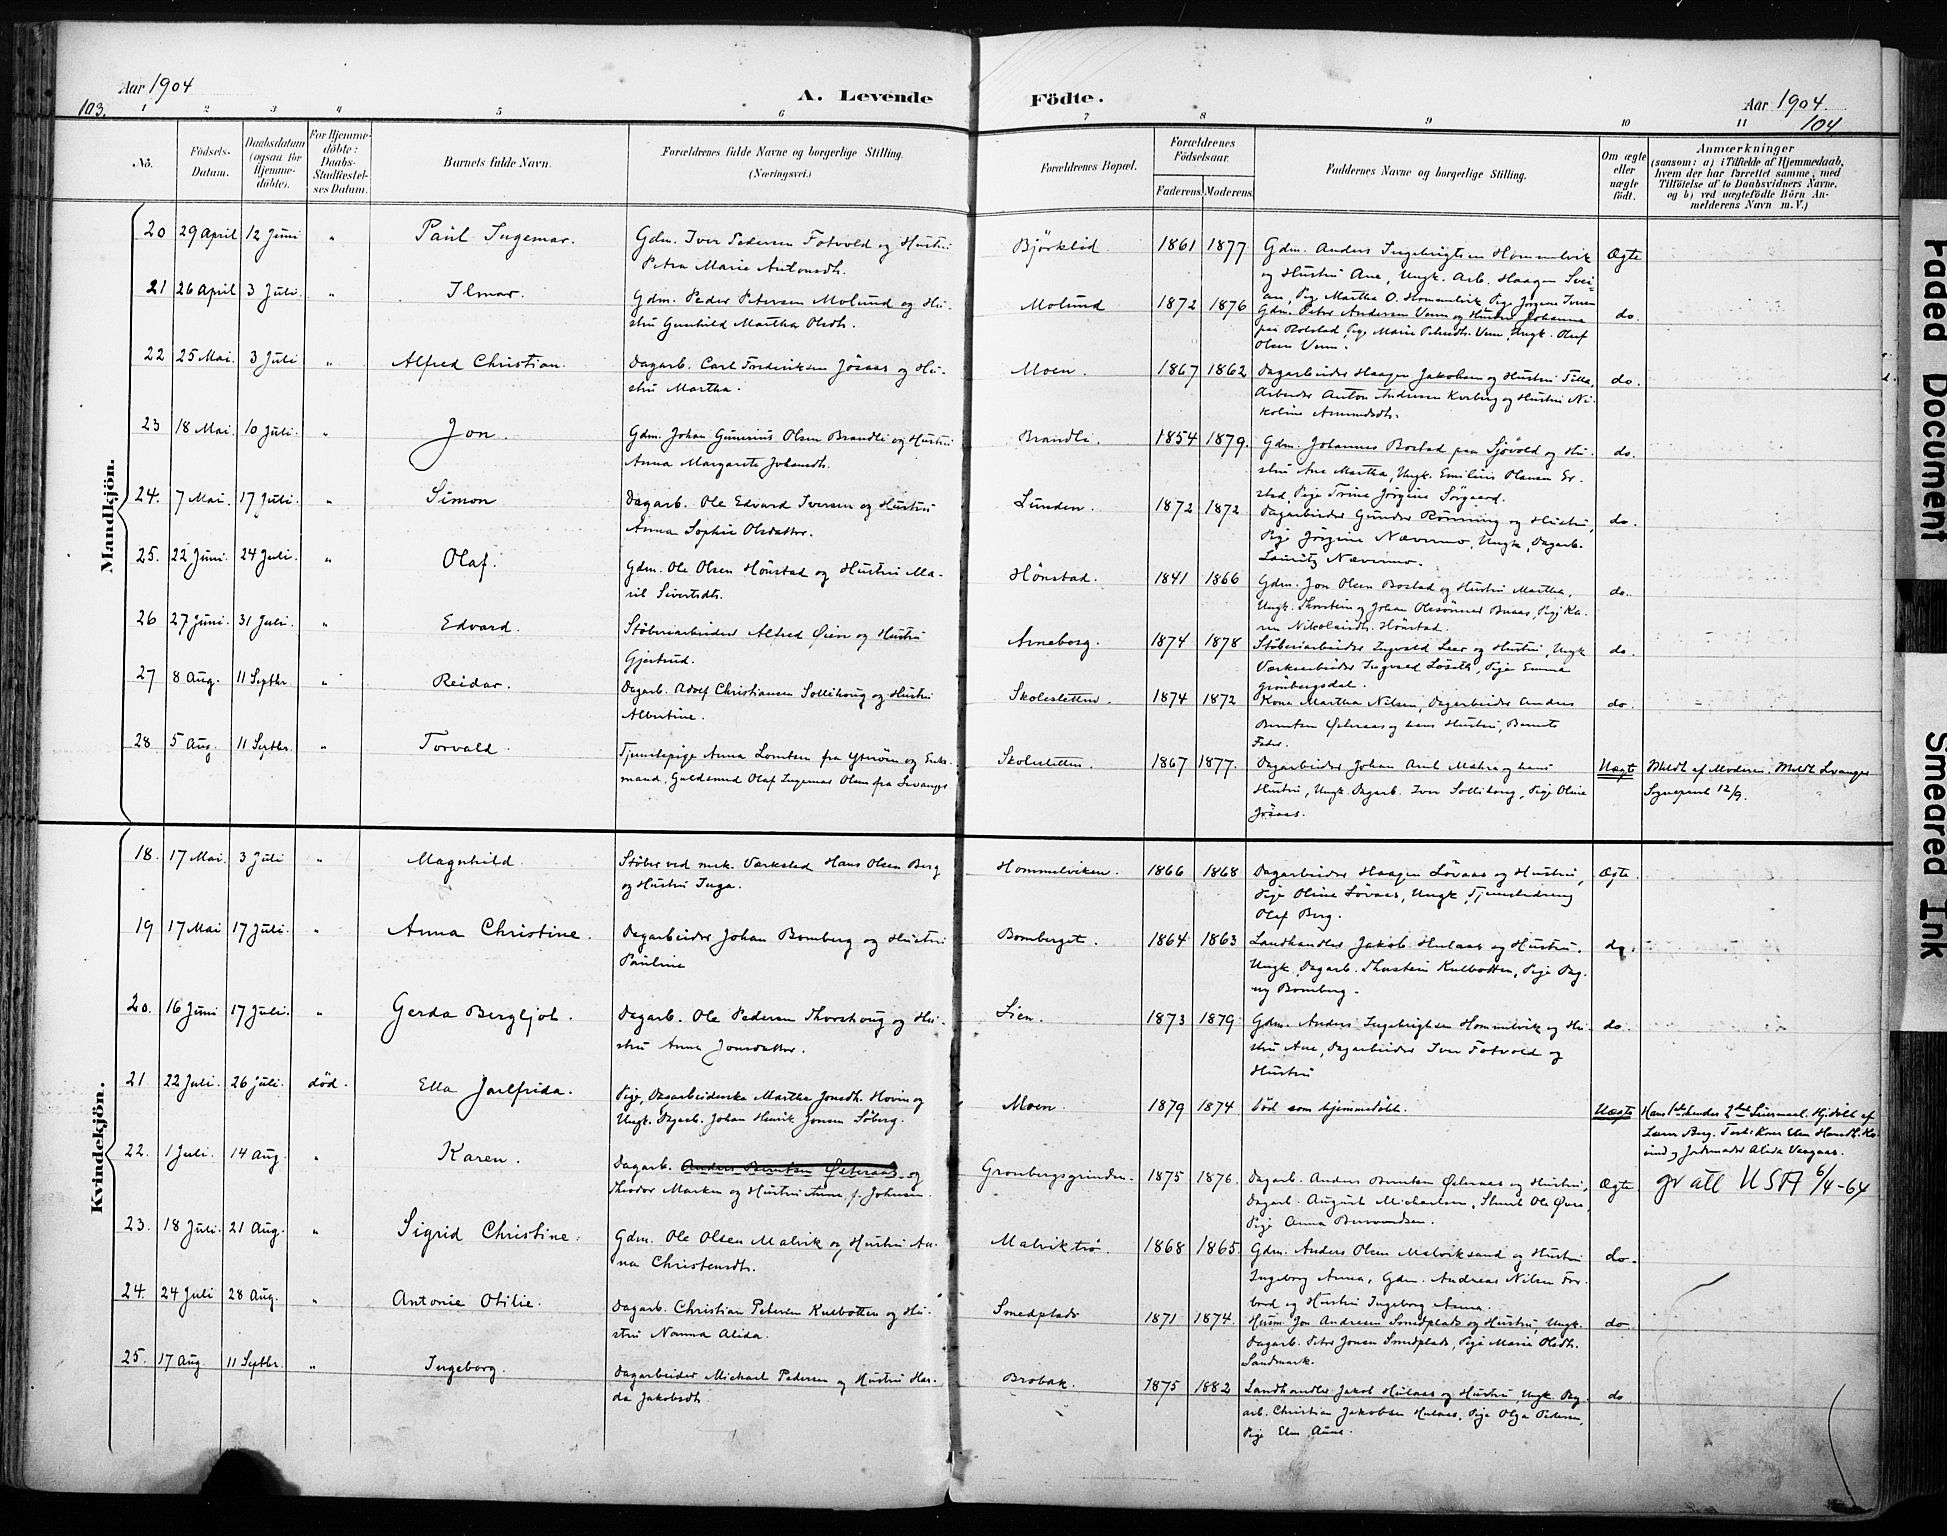 Aar 1904
103.
A. Levende Födte.
Aar 1904.
104
1 2 3 4 5 6 7 8 9 10 11
No.
Födsels-Datum.
Daabsdatum (ogsaa for Hjemmedöbte).
For Hjemmedöbte: Daabs-Stadfæstelses Datum.
Barnets fulde Navn.
Forældrenes fulde Navne og borgerlige Stilling.
(Næringsvei.)
Forældrenes Bopæl.
Forældrenes Födselsaar.
Faderens. Moderens.
Faddernes Navne og borgerlige Stilling.
Om ægte eller uægte födt.
Anmærkninger
(saasom: a) i Tilfælde af Hjemmedaab, hvem der har forrettet samme, med Tilföielse af to Daabsvidners Navne, og b) ved uægtefödte Börn Anmelderens Navn m. V.)
Mandkjön.
20 29 April 12 Juni " Paul Ingemar. Gdm. Iver Pedersen Fotvold og Hustru
Petra Marie Antonsdt.
Björklid 1861 1877 Gdm. Anders Ingebrigtsen Hommelvik
og Hustru Ane, Ungk. Arb. Haagen Svei-
ane, Pige Martha O. Hommelvik, Pige Jørgine Iversen
Ægte
21 26 April 3 Juli " Ilmar. Gdm. Peder Petersen Molund og Hu-
stru Gunhild Martha Olsdt.
Molund 1872 1876 Gdm. Peter Andersen Venn og Hustru Johanna
paa Rolstad, Pige Marie Petersdt. Venn, Ungk. Oluf
Olsen Venn.
do.
22 25 Mai. 3 Juli " Alfred Christian. Dagarb. Carl Frederiksen Jösaas og Hu-
stru Martha.
Moen. 1867 1862 Dagarbeider Haagen Jakobsen og Hustru Tilla,
Arbeider Anton Andersen Kvaberg og Hustru Ni-
koline Amundsdt.
do.
23 18 Mai 10 Juli. " Jon. Gdm. Johan Gunerius Olsen Brandli og Hustru
Anna Margrete Johansdt.
Brandli. 1854 1879. Gdm. Johannes Bostad paa Sjövold og Hu-
stru Ane Martha, Ungk. Emilius Olausen Er-
stad, Pige Trine Jörgine Sörgaard.
do.
24. 7 Mai. 17 Juli. " Simon Dagarb. Ole Edvard Iversen og Hustru
Anna Sophie Olsdatter.
Lunden. 1872 1872 Dagarbeider Gunder Rönning og Hustru,
Pige Jörgine Nævermo, Ungk. Dagarb.
Lauritz Nævermo.
do.
25. 22 Juni. 24 Juli. " Olaf. Gdm. Ole Olsen Hönstad og Hustru Ma-
ril Sivertsdt.
Hönstad. 1841 1866 Gdm. Jon Olsen Bostad og Hustru Martha,
Ungk. Thorstein og Johan Olssönner Buaas, Pige Ka-
ren Nikolaisdt. Hönstad.
do.
26 27 Juni. 31 Juli. " Edvard. Støberiarbeider Alfred Øien og Hustru
Gjertrud.
Arneborg. 1874 1878 Støberiarbeider Ingvald Leer og Hustru, Ungk
Værksarbeider Ingvald Löseth, Pige Emma
Grönbergsdal.
do.
27 8 Aug. 11 Septbr. " Reidar. Dagarb. Adolf Christiansen Sollihaug og Hustru
Albertine.
Skolesletten. 1874 1872 Kona Martha Nilsen, Dagarbeider Anders
Berntsen Østeraas og hans Hustru, Barnets
Fader.
do.
28 5 Aug. 11 Septbr. " Torvald. Tjenestepige Anna Lorntsen fra Ytterøen og Enke-
mand, Guldsmed Olaf Ingemar Olsen fra Levanger
Skolesletten. 1867 1877. Dagarbeider Johan Arnt Mæhre og hans
Hustru, Ungk. Dagarb. Iver Sollihaug, Pige Oline
Jösaas.
Uægte Meldt af Moderen. Meldt Levanger
Sogneprest 12/9.
Kvindekjön.
18. 17 Mai. 3 Juli " Magnhild. Støber ved mek. Værksted Hans Olsen Berg
og Hustru Inga.
Hommelviken. 1866 1868 Dagarbeider Haagen Lövaas og Hustru,
Pige Oline Lövaas, Ungk. Tjenestedreng
Olaf Berg.
Ægte.
19 17 Mai 17 Juli. " Anna Christine. Dagarbeider Johan Bomberg og Hustru
Pauline
Bomberget. 1864 1863 Landhandler Jakob Hulaas og Hustru.
Ungk. Dagarb. Thorstein Kulbotten, Pige Dag-
ny Bomberg.
do.
20. 16 Juni 17 Juli. " Gerda Bergljot. Dagarb. Ole Pedersen Thorshaug og Hu-
stru Anna Jonsdatter.
Lien. 1873 1879 Gdm. Anders Ingebrigtsen Hommelvik og Hu-
stru Ane, Dagarbeider Iver Fotvold og
Hustru
do.
21 22 Juli. 26 Juli. död. Ella Jarlfrida. Pige, Dagarbeiderske Martha Jonsdt. Hovin og
Ungk. Dagarb. Johan Henrik Jonsen Söberg.
Moen. 1879 1874 Död som hjemmedöbt.
Uægte Hans 1ste hendes 2det Leiermaal. Hjdöbt af
22. 1 Juli. 14 Aug. " Karen. Dagarb. Anders Berntsen Østeraas og
Theodor Marken og Hustru Anna f. Johnsen.
Grønbergsgrinden. 1875 1876. Dagarb. Anders Berntsen Østeraas og Hustru,
Dagarb. August Michaelsen, Stuert Ole Øvre,
Pige Anna
Ægte. gr att USA 6/4-64
23. 18 Juli. 21 Aug. " Sigrid Christine. Gdm. Ole Olsen Malvik og Hustru An-
na Christensdt.
Malviktrø. 1868 1865. Gdm. Anders Olsen Malviksand og Hustru
Ingeborg Anna, Gdm. Andreas Nilsen For-
bord og Hustru Ingeborg Anna.
do.
24. 24 Juli 28 Aug. " Antonie Otilie. Dagarb. Christian Petersen Kulbotten og Hu-
stru Nanna Alida.
Smedplads 1871 1874. Husm. Jon Andersen Smedplads og Hustru, Ungk.
Dagarb. Peter Jonsen Smedplads, Pige Marie Olsdt.
Sandmark.
do
25. 17 Aug. 11 Septbr. " Ingeborg. Dagarbeider Michael Pedersen og Hustru Har-
da Jakobsdt.
Brobak. 1875 1882 Landhandler Jakob Hulaas og Hustru, Ungk. Dag-
arb. Christian Jakobsen Hulaas, Pige Olga Pedersen,
Pige Elen Aune.
do
Faded Document
Smeared Ink